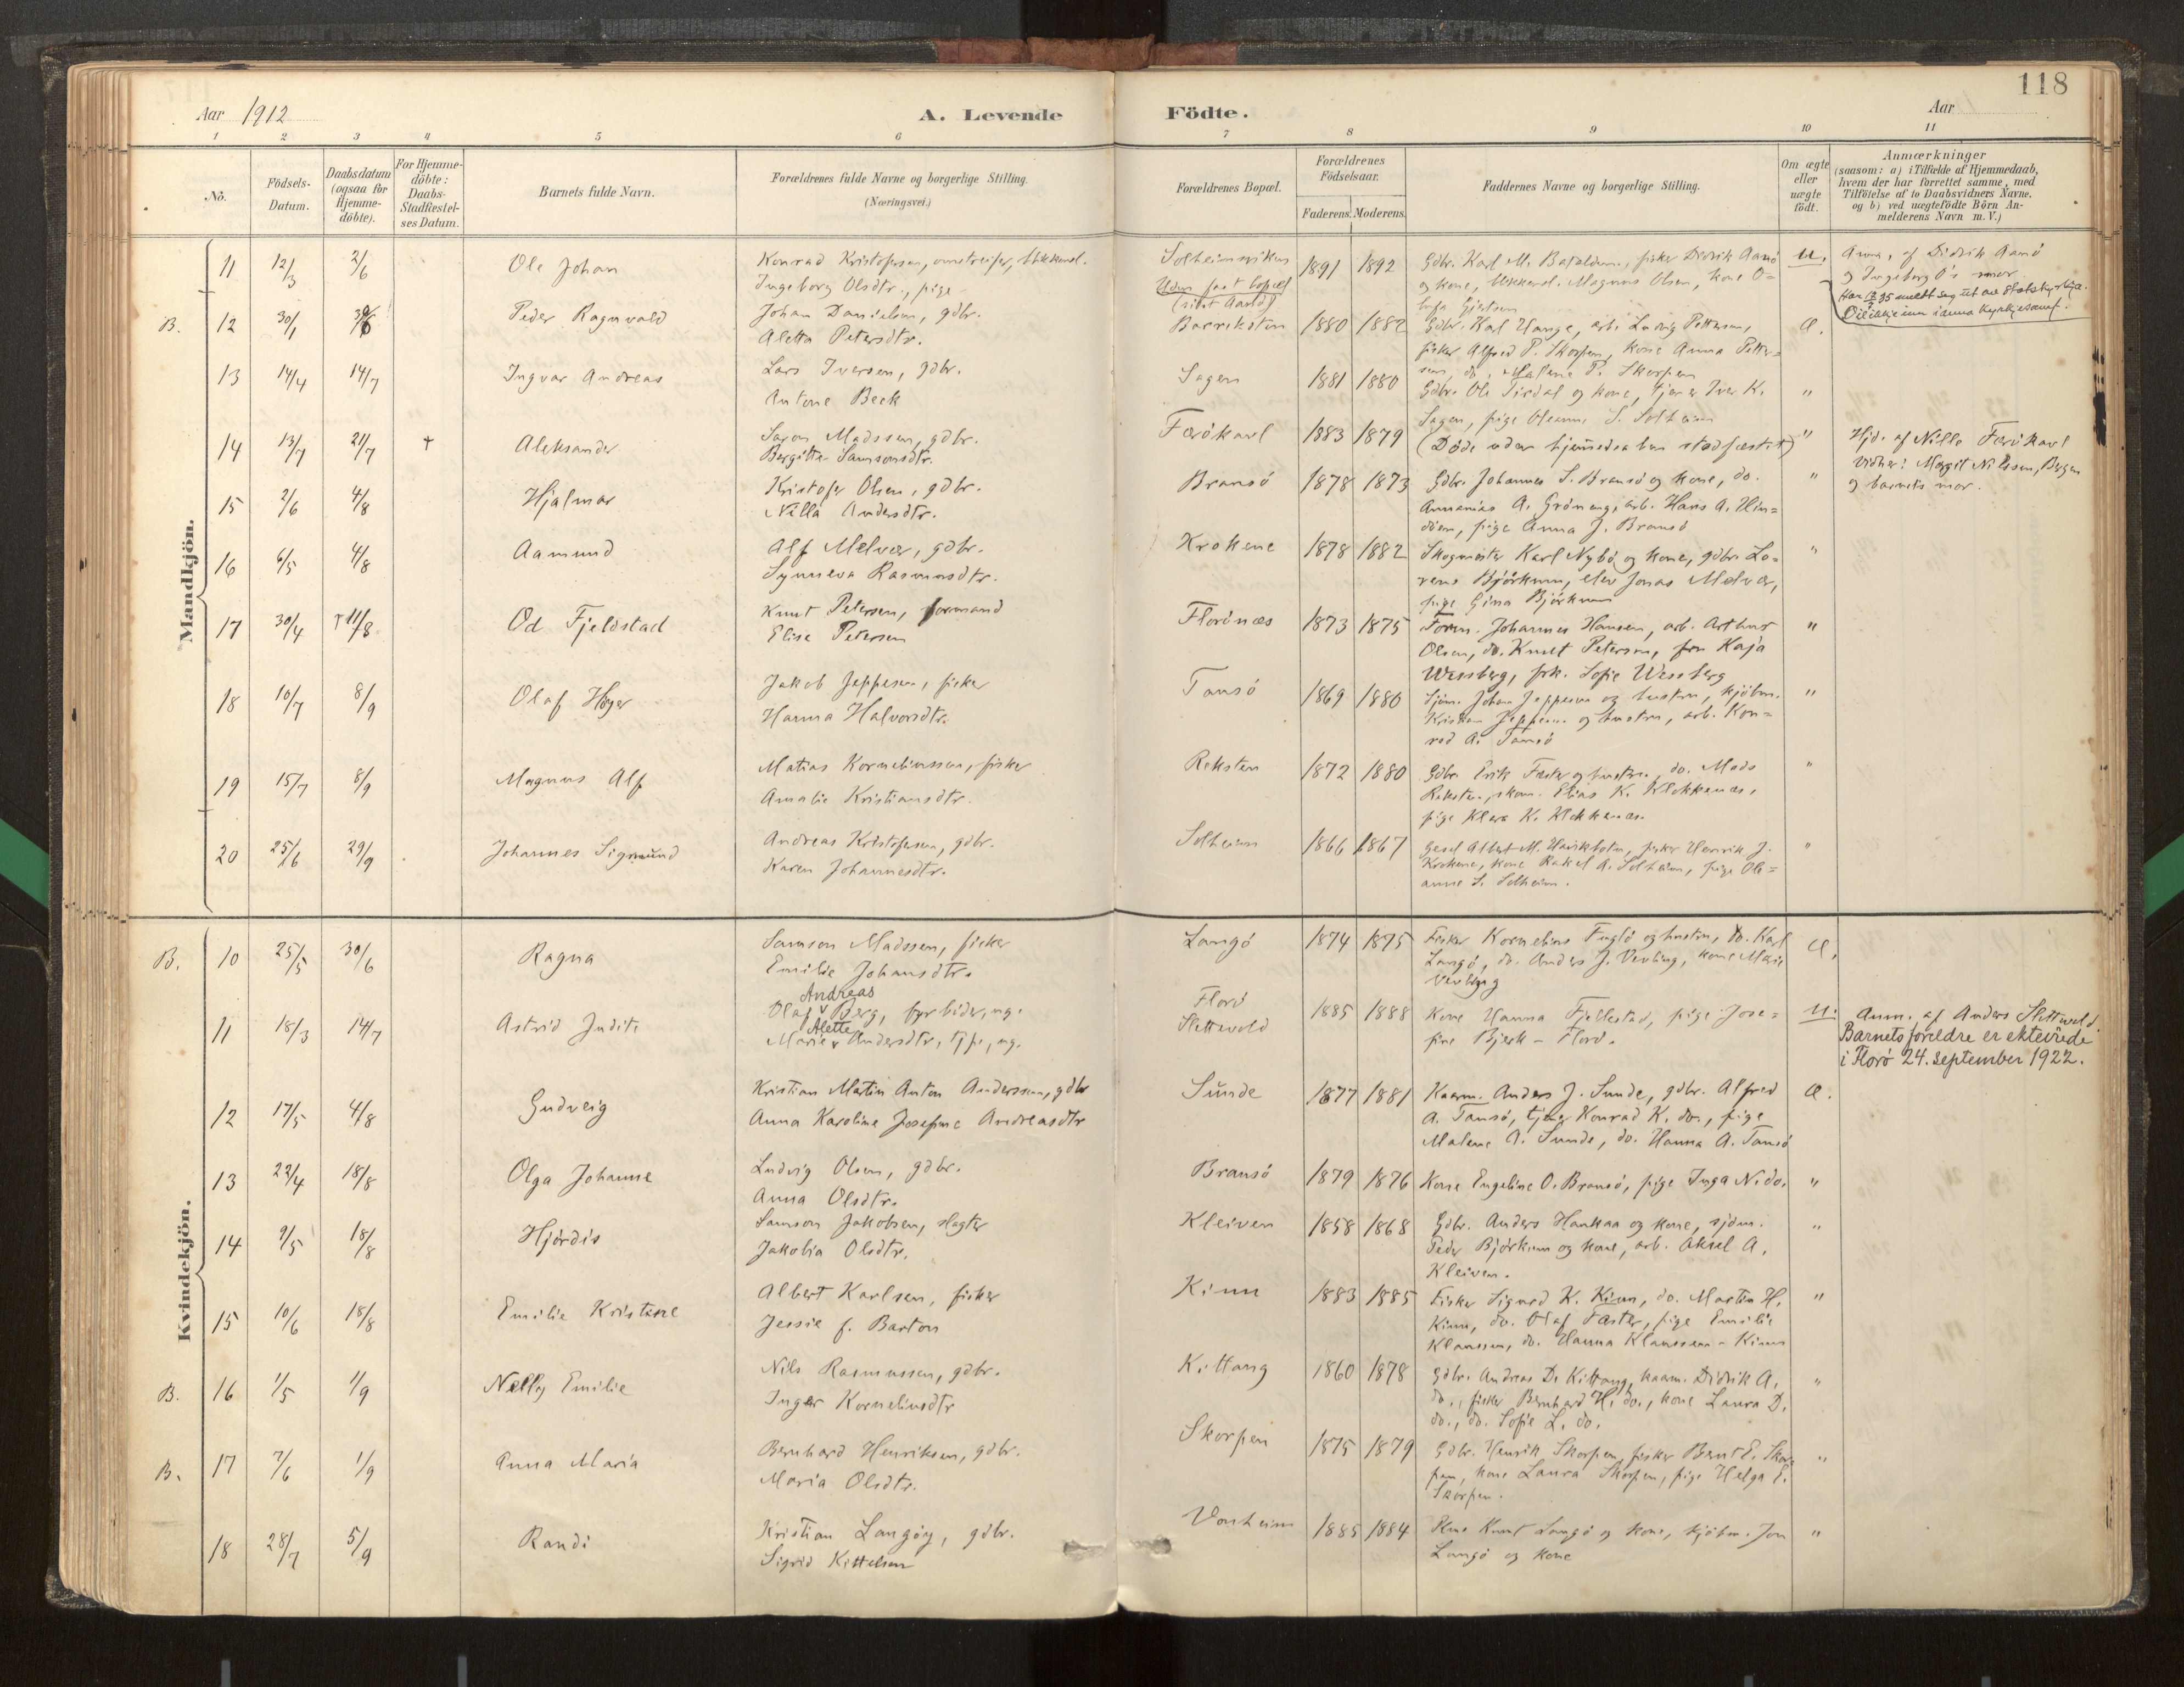 118
Aar 1912
A. Levende
Födte.
Aar
1 2 3 4 5 6 7 8 9 10 11
No.
Födsels-
Datum.
Daabsdatum
(ogsaa for
Hjemme-
döbte).
For Hjemme-
döbte:
Daabs-
Stadfæstel-
ses Datum.
Barnets fulde Navn.
Forældrenes fulde Navne og borgerlige Stilling.
(Næringsvei.)
Forældrenes Bopæl.
Forældrenes
Födselsaar.
Faderens. Moderens.
Faddernes Navne og borgerlige Stilling.
Om ægte
eller
uægte
födt.
Anmærkninger
(saasom: a) i Tilfælde af Hjemmedaab,
hvem der har forrettet samme, med
Tilföielse af to Daabsvidners Navne.
og b) ved uægtefödte Börn An-
melderens Navn m. V.)
Mandkjön.
11 12/3 2/6 Ole Johan
Konrad Kristofersen,
Ingeborg Olsdtr., pige
Solheimsviken
1891 1892
Gdbr. Karl M. Batalden, fisker Didrik Aanö
og kone, Magnus Olsen, kone O-
u.
Anm. af Didrik Aanö
og Ingeborg O's mor
B. 12 30/1 Peder Ragnvald
Johan Danielsen, gdbr.
Aletta Petersdtr.
Barekstun 1880 1882
Gdbr. Karl Hauge, arb. Ludvig Pettersen,
fisker Alfred P. Skorpen, kone Anna Petter=
sen, do. Malene P. Skorpen
Æ.
13 14/4 14/7 Ingvar Andreas
Lars Iversen, gdbr.
Antone Beck
Sagen 1881 1880
Gdbr. Ole Tirdal og kone, tjener Iver K.
Sagen, pige Oleanne S. Solheim
"
14 13/7 21/7 + Aleksander
Madssen, gdbr.
Bergitte Samsonsdtr.
Færökarl 1883 1879
(Döde uden hjemmedaaben stadfæstet)
"
Hjd. af Nille Færökarl
Vidner: Margit Nilssen, Bergen
og barnets mor.
15 2/6 4/8 Hjalmar
Kristofer Olsen, gdbr.
Nilla Andersdtr.
Bransö 1878 1873
Gdbr. Johannes S. Bransö og kone, do.
Annanias A. Gröneng, arb. Hans A. Hin=
döen, pige Anna J. Bransö
"
16 6/5 4/8 Aamund
Alf Melvær, gdbr.
Synneva Rasmusdtr.
Krokene 1878 1882
Skogmester Karl Nybö og kone, gdbr. Lo=
rens Björkum, elev Jonas Melvær,
pige Gina Björkum
"
17 30/4 +11/8 Od Fjeldstad
Knut Petersen, formand
Elise Petersen
Florönæs 1873 1875
Form. Johannes Hansen, arb. Arthur
Olsen, do. Knut Petersen, fru Kaja
Wessberg, frk. Sofie Wessberg
"
18 10/7 8/9 Olaf Høyer
Jakob Jeppesen, fisker
Hanna Halvorsdtr.
Tansö 1869 1880
Sjöm. Johan Jeppesen og hustru, kjöbm.
Kristian Jeppesen og hustru, arb. Kon=
rad A. Tansö
"
19 15/7 8/9 Magnus Alf
Matias Korneliussen, fisker
Amalie Kristiansdtr.
Reksten 1872 1880
Gdbr. Erik Fæster og hustru, do. Mads
Reksten, skom. Elias K. Klokkenæs,
pige Klara K. Klokkenæs.
"
20 25/6 29/9 Johannes Sigmund
Andreas Kristofersen, gdbr.
Karen Johannesdtr.
Solheim 1866 1867
Gesel Albert M. fisker Henrik J.
Krokene, kone Rakel A. Solheim, pige Ole=
anne S. Solheim.
"
Kvindekjön.
B. 10 25/5 30/6 Ragna
Samson Madssen, fisker
Emilie Johansdtr.
Langö 1874 1875
Fisker Kornelius Fuglö og hustru, do. Karl
Langö, do. Anders J. Vevling, kone Marie
Vevling
Æ.
11 18/3 14/7 Astrid Judite
Andreas
Olaf v Berg, fyrböder, ug.
Alette
Marie v Andersdtr, tjpi, ug.
Florö
Slettevold
1885 1888
Kone Hanna Fjellestad, pige Jose=
fine Bjerk - Florö.
u.
Anm. af Anders Slettevold.
Barnets foreldre er ektevidde
i Florö 24. september 1922.
12 17/5 4/8 Gudveig
Kristian Martin Anton Anderssen, gdbr
Anna Karoline Josefine Andreasdtr
Sunde 1877 1881
Kaarm. Anders J. Sunde, gdbr. Alfred
A. Tansö, tjener Konrad K. do., pige
Malene A. Sunde, do. Hanna A. Tansö
Æ.
13 22/4 18/8 Olga Johanne
Ludvig Olsen, gdbr.
Anna Olsdtr.
Bransö 1879 1876
Kone Engeline O. Bransö, pige Inga N. do.
"
14 9/5 18/8 Hjördis
Samson Jakobsen, slagter
Jakobia Olsdtr.
Kleiven 1858 1868
Gdbr. Anders Haukaa og kone, sjöm.
Peder Björkum og kone, arb. Aksel A.
Kleiven.
"
15 10/6 18/8 Emilie Kristine
Albert Karlsen, fisker
Jessie f. Barton
Kinn 1883 1885
Fisker Sigurd K. Kinn, do. Martin H.
Kinn, do. Olaf Fæster, pige Emilie
Klaussen, do. Hanna Klaussen - Kinn
"
B. 16 1/5 1/9 Nelly Emilie
Nils Rasmussen, gdbr.
Inger Korneliusdtr
Kittang 1860 1878
Gdbr. Andreas D. Kittang, kaarm. Didrik A.
do., fisker Bernhard H. do., kone Laura D.
do., do. Sofie L. do.
"
B. 17 7/6 1/9 Anna Maria
Bernhard Henriksen, gdbr.
Maria Olsdtr.
Skorpen 1875 1879
Gdbr. Henrik Skorpen, fisker Bernt E. Skor
pen, kone Laura Skorpen, pige Helga E.
Skorpen.
"
18 28/7 5/9 Randi
Kristian Langöy, gdbr.
Sigrid Kittelsen
Vonheim 1885 1884
Knut Langö og kone, kjöbm. Jon
Langö og kone
"